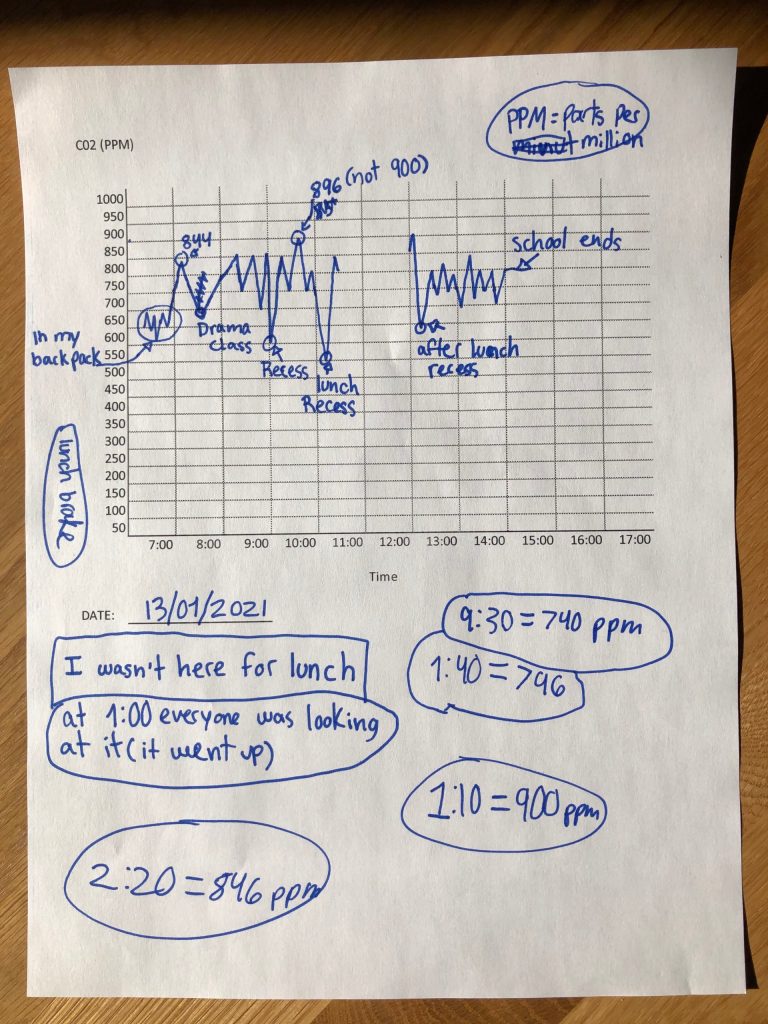 PPM = parts per
million
CO2 (PPM)
896 (not 900)
1000
950
900
850
800
750
700
650
600
550
500
450
400
350
300
250
200
150
100
50
844
school ends
In my
backpack
Drama
class
Recess
lunch
Recess
after lunch
recess
lunch brake
7:00 8:00 9:00 10:00 11:00 12:00 13:00 14:00 15:00 16:00 17:00
Time
DATE: 13/01/2021
9:30 = 740 ppm
I wasn't here for lunch
1:40 = 796
at 1:00 everyone was looking
at it (it went up)
1:10 = 900 ppm
2:20 = 846 ppm